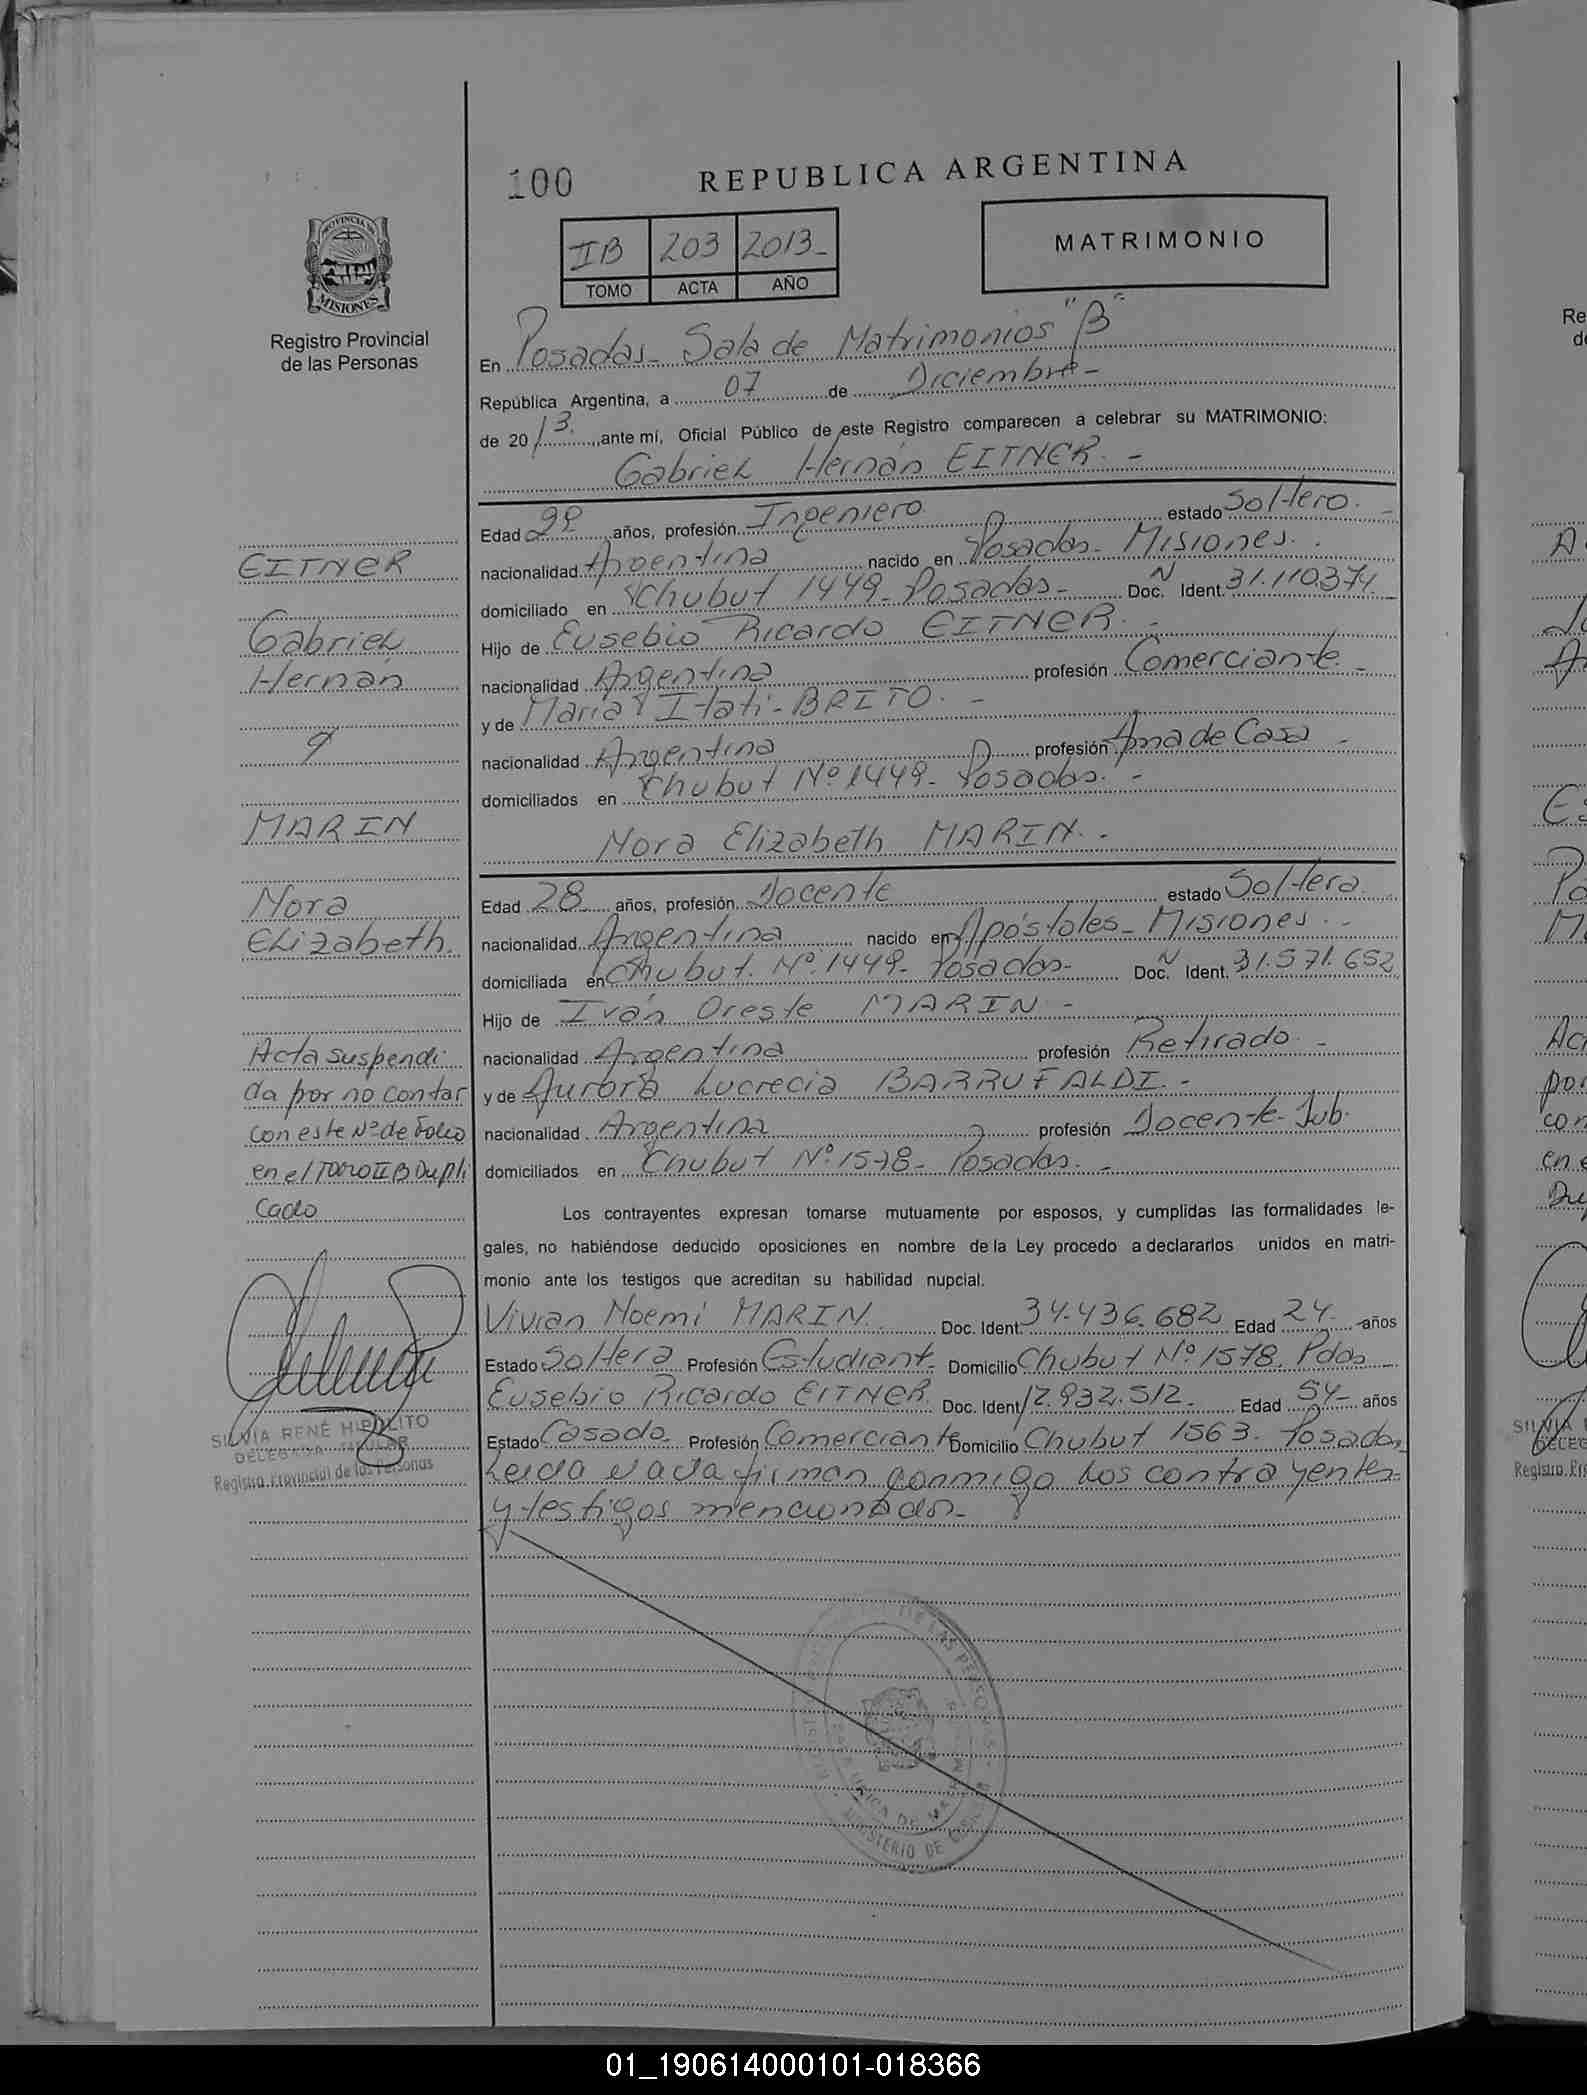 100
REPUBLICA ARGENTINA
IB 203 2013-
TOMO ACTA AÑO
MATRIMONIO
PROVINCIA DE
MISIONES
Registro Provincial
de las Personas
En Posadas- Sala de Matrimonios "B"
República Argentina, a 07 de Diciembre-
de 2013. ante mí, Oficial Público de este Registro comparecen a celebrar su MATRIMONIO:
Gabriel Hernán EITNER.-
Edad años, profesión Ingeniero estado Soltero.-
nacionalidad Argentina nacido en Posadas- Misiones.
domiciliado en Chubut 1449- Posadas- Doc. N Ident. 31.110.374.
Hijo de Eusebio Ricardo EITNER.-
nacionalidad Argentina profesión Comerciante.-
y de María Itatí- BRITO.-
nacionalidad Argentina profesión Ama de Casa-
domiciliados en Chubut Nº 1449- Posadas.-
Nora Elizabeth MARIN.-
Edad 28 años, profesión Docente estado Soltera
nacionalidad Argentina nacido en Apóstoles- Misiones.-
domiciliada en Chubut. Nº.1449- Posadas- Doc. N Ident. 31.571.652
Hijo de Iván Oreste MARIN-
nacionalidad Argentina profesión Retirado.-
y de Aurora Lucrecia BARRUFALDI.-
nacionalidad Argentina profesión Docente-Jub.
domiciliados en Chubut Nº.1578- Posadas.-
Los contrayentes expresan tomarse mutuamente por esposos, y cumplidas las formalidades le-
gales, no habiéndose deducido oposiciones en nombre de la Ley procedo a declararlos unidos en matri-
monio ante los testigos que acreditan su habilidad nupcial.
Vivian Noemi MARIN. Doc. Ident. 34.436.682 Edad 24- años
Estado Soltera Profesión Estudiant. Domicilio Chubut Nº.1578. Pdas
Eusebio Ricardo EITNER. Doc. Ident. 12.932.512.- Edad 54- años
Estado Casado. Profesión Comerciante Domicilio Chubut 1563. Posadas
Leida el acta firman conmigo los contrayentes
y testigos mencionados-
EITNER
Gabriel
Hernán
y
MARIN
Nora
Elizabeth.
Acta suspendi
da por no contar
con este Nº de Folio
en el TOMO II B Dupli
cado
SILVIA RENÉ HIPOLITO
DELEGADA TITULAR
Registro Provincial de las Personas
DE LAS PERSONAS
MINISTERIO DE
01_190614000101-018366